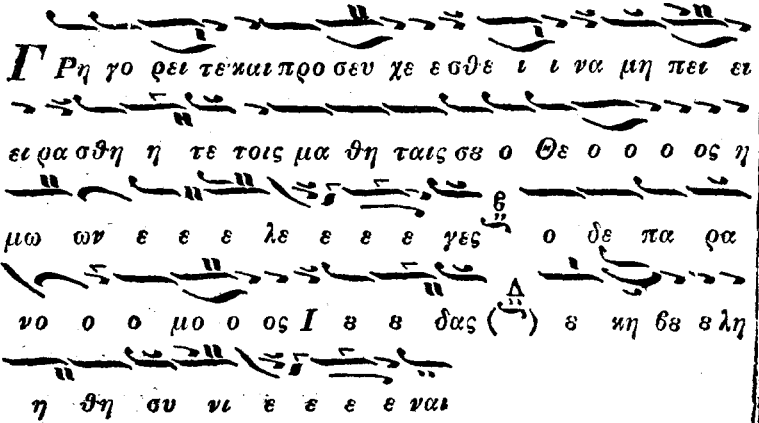 Γ Ρη γο ρει τε και προ σευ χε ε σθε ι ι να μη πει ει
ει ρα σθη η τε τοις μα θη ταις σȣ ο Θε ο ο ο ος η
μω ων ε ε ε λε ε ε ε γες ο δε πα ρα
νο ο ο μο ο ος Ι ȣ ȣ δας (Δ) ȣ κη βȣ ȣ λη
η θη συ νι ε ε ε ε ναι